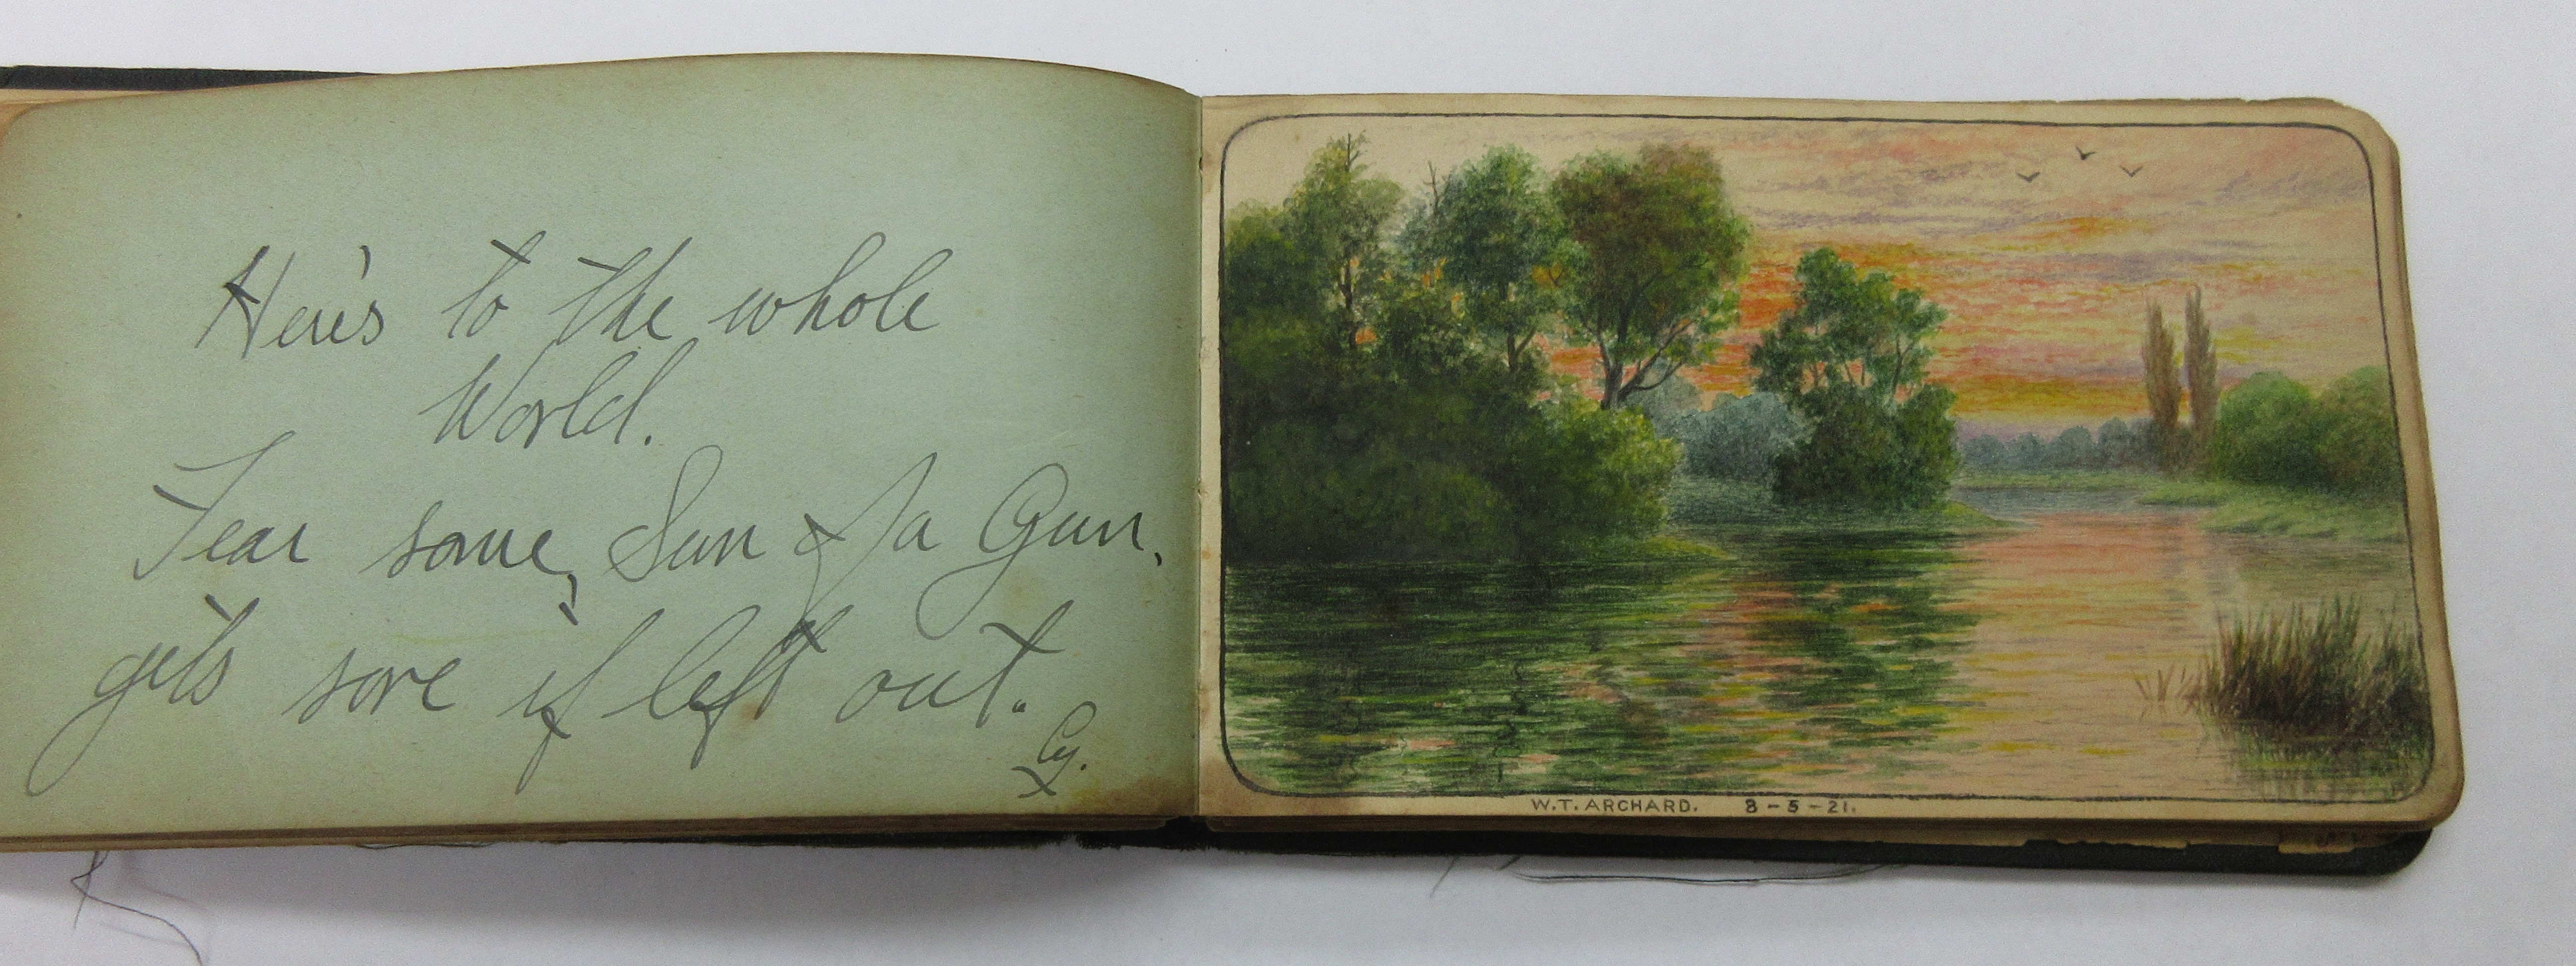 Here's to the whole
World.
Fear some, Sun of a Gun,
gets sore if left out.
Cy.
W.T. ARCHARD. 8-5-21.